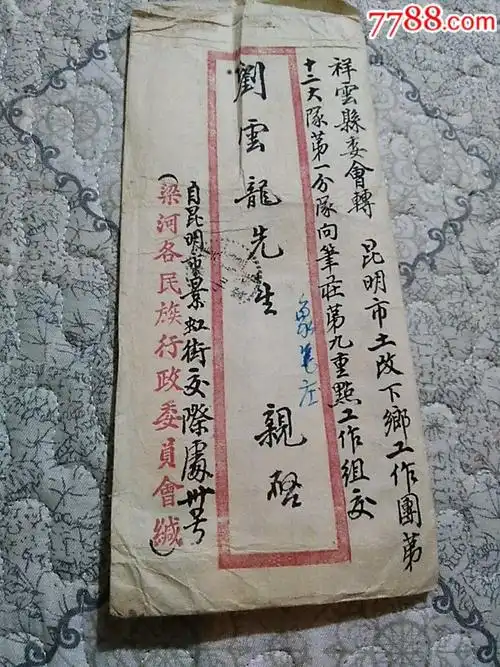 7788.com
祥雲縣委會轉 昆明市土改下鄉工作團第
十二大隊第一分隊向筆莊第九重點工作組交
劉雲龍先生 親啓
自昆明市景虹街交際處卅号
(梁河各民族行政委員會緘)